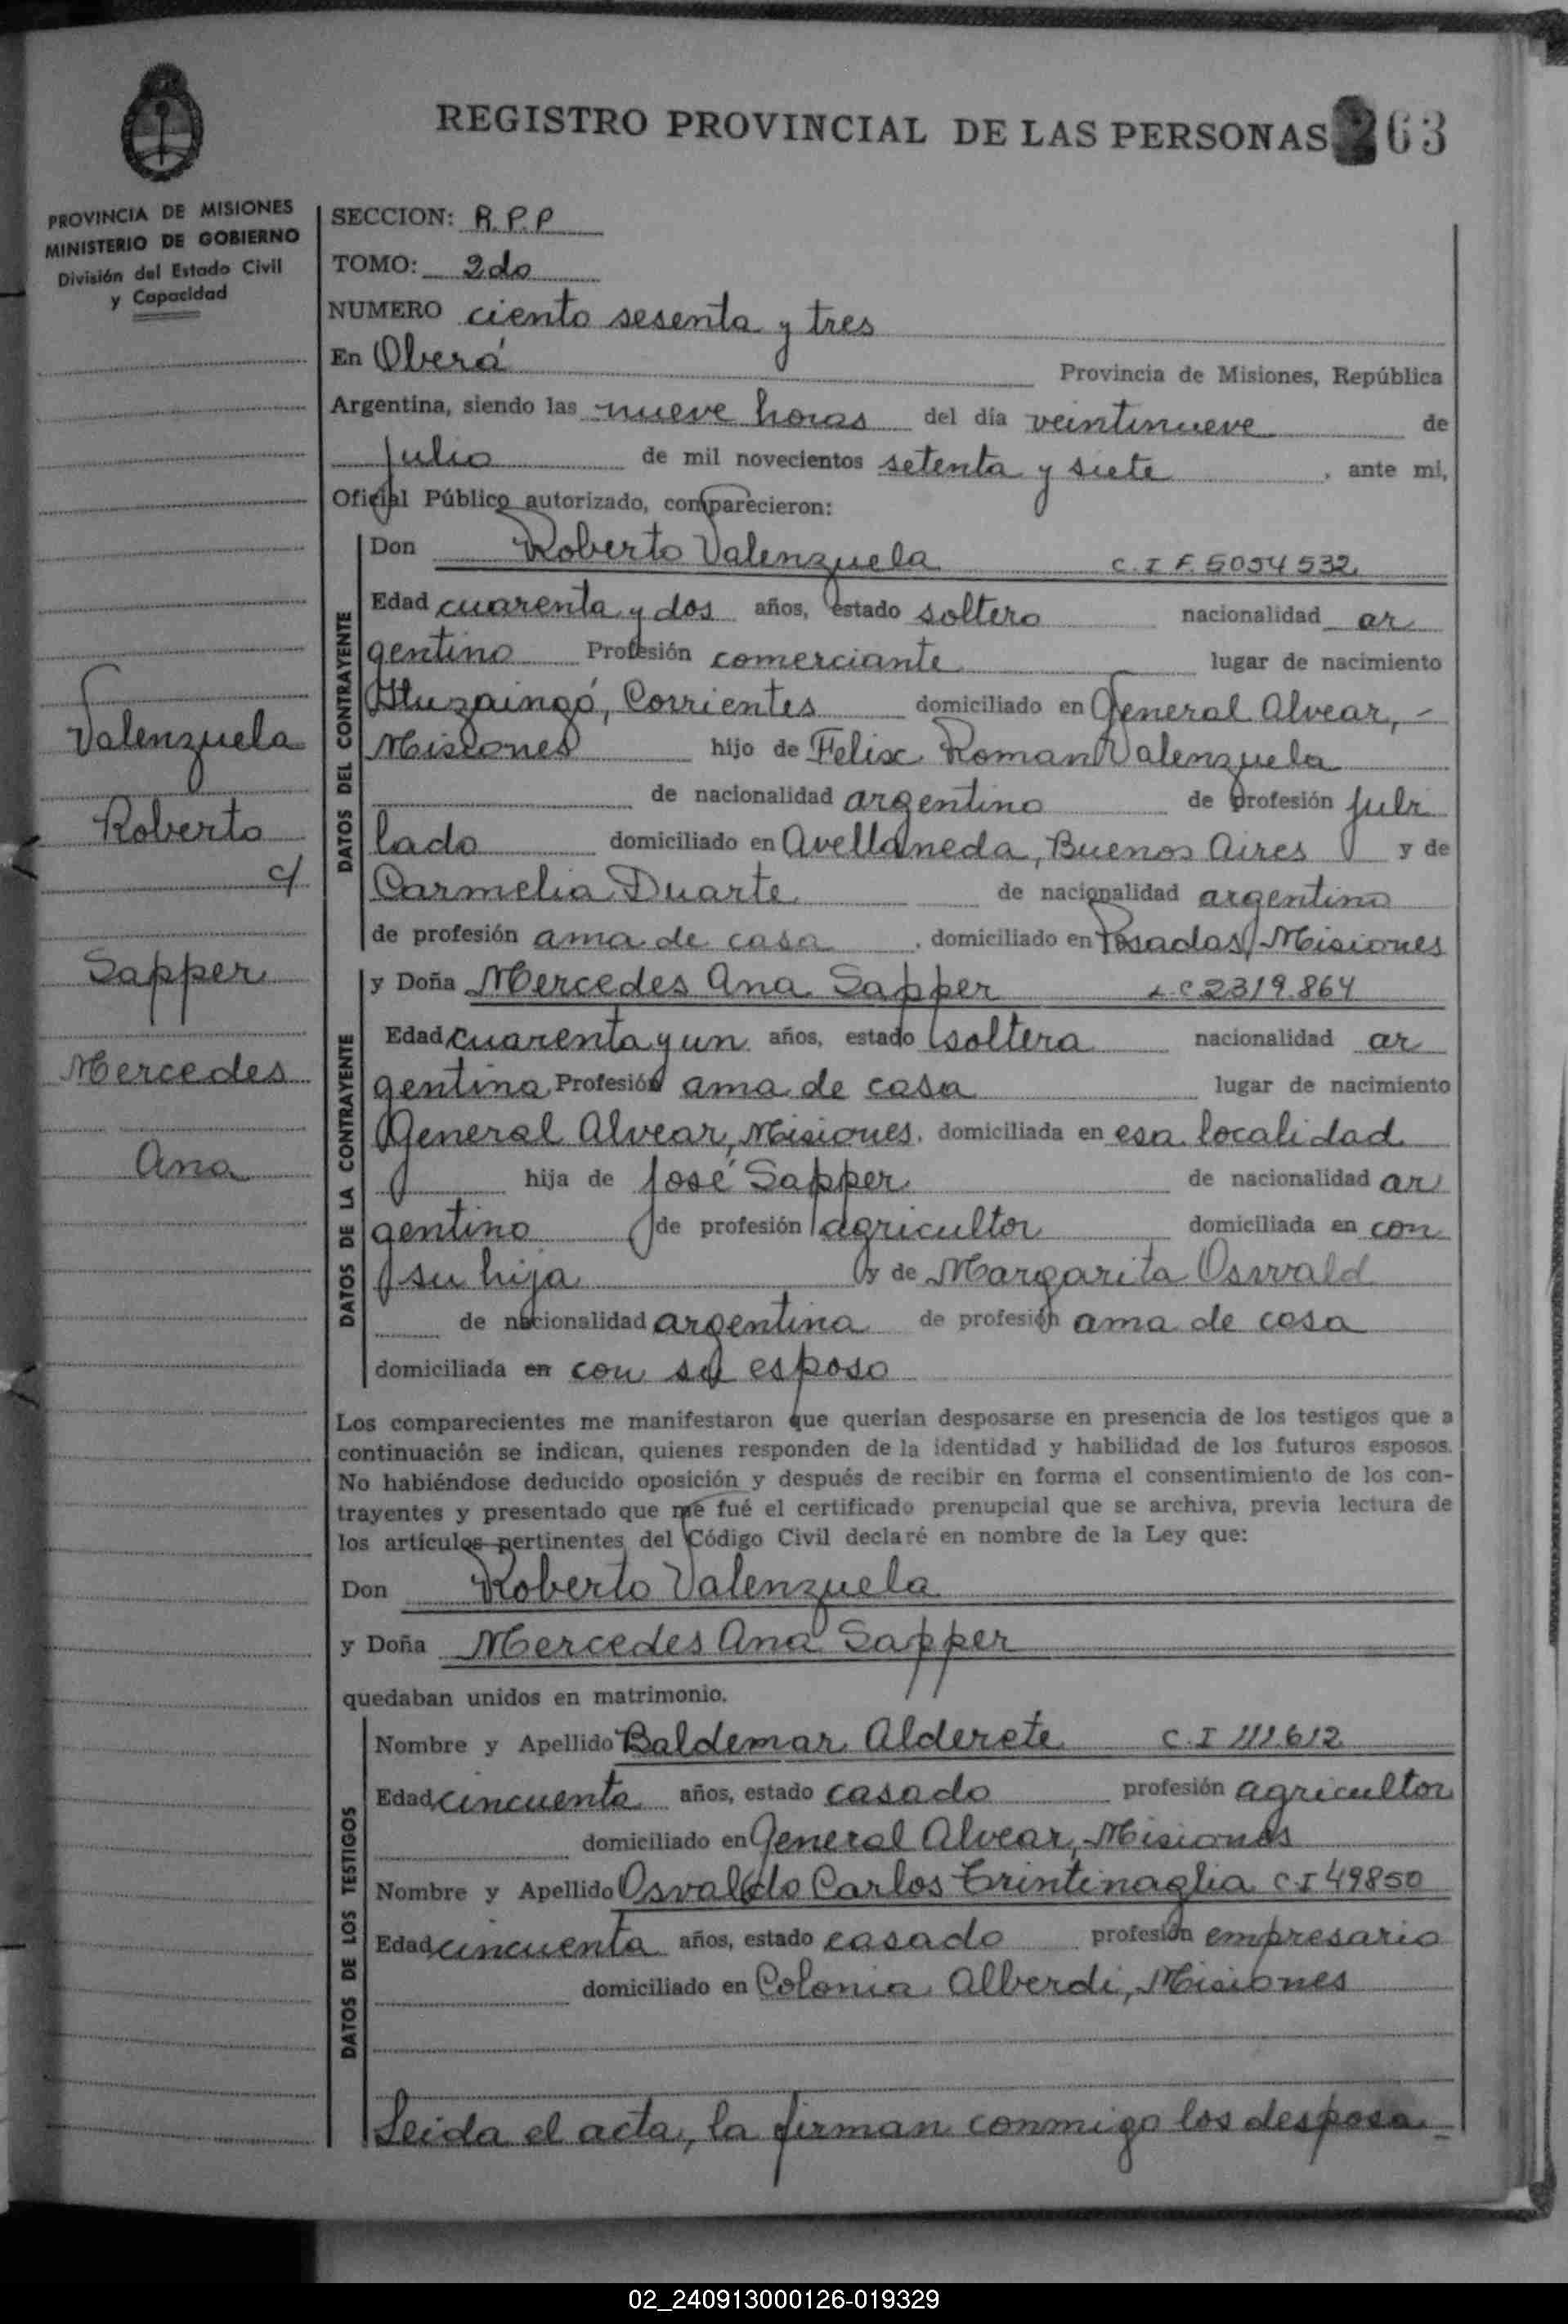 REGISTRO PROVINCIAL DE LAS PERSONAS 263
PROVINCIA DE MISIONES
MINISTERIO DE GOBIERNO
División del Estado Civil
y Capacidad
SECCION: R.P.P
TOMO: 2do
NUMERO ciento sesenta y tres
En Oberá Provincia de Misiones, República
Argentina, siendo las nueve horas del día veintinueve de
julio de mil novecientos setenta y siete, ante mi,
Oficial Público autorizado, comparecieron:
DATOS DEL CONTRAYENTE
Don Roberto Valenzuela C.I F. 5054532
Edad cuarenta y dos años, estado soltero nacionalidad ar
gentino Profesión comerciante lugar de nacimiento
Ituzaingó, Corrientes domiciliado en General Alvear, -
Misiones hijo de Felix Roman Valenzuela
de nacionalidad argentino de profesión jubi
lado domiciliado en Avellaneda, Buenos Aires y de
Carmelia Duarte de nacionalidad argentina
de profesión ama de casa, domiciliado en Posadas, Misiones
Valenzuela
Roberto
c/
Sapper
Mercedes
Ana
DATOS DE LA CONTRAYENTE
y Doña Mercedes Ana Sapper L C 2319.864
Edad cuarenta y un años, estado soltera nacionalidad ar
gentina Profesión ama de casa lugar de nacimiento
General Alvear, Misiones, domiciliada en esa localidad
hija de José Sapper de nacionalidad ar
gentino de profesión agricultor domiciliada en con
su hija y de Margarita Oswald
de nacionalidad argentina de profesión ama de casa
domiciliada en con su esposo
Los comparecientes me manifestaron que querían desposarse en presencia de los testigos que a
continuación se indican, quienes responden de la identidad y habilidad de los futuros esposos.
No habiéndose deducido oposición y después de recibir en forma el consentimiento de los con-
trayentes y presentado que me fué el certificado prenupcial que se archiva, previa lectura de
los artículos pertinentes del Código Civil declaré en nombre de la Ley que:
Don Roberto Valenzuela
y Doña Mercedes Ana Sapper
quedaban unidos en matrimonio.
DATOS DE LOS TESTIGOS
Nombre y Apellido Baldemar Alderete C.I 111.612
Edad cincuenta años, estado casado profesión agricultor
domiciliado en General Alvear, Misiones
Nombre y Apellido Osvaldo Carlos Trintinaglia C.I 49850
Edad cincuenta años, estado casado profesión empresario
domiciliado en Colonia Alberdi, Misiones
Leida el acta, la firman conmigo los desposa-
02_240913000126-019329